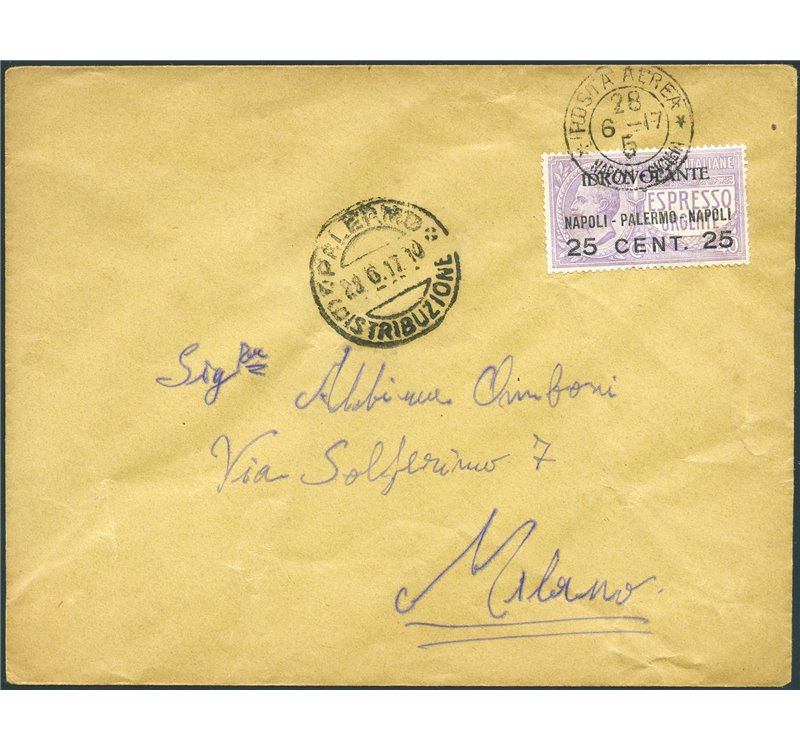 POSTA AEREA
28
6 - 17
5
POSTE ITALIANE
IDROVOLANTE
ESPRESSO
URGENTE
NAPOLI - PALERMO - NAPOLI
25 CENT. 25
PALERMO
28.6.17.10
DISTRIBUZIONE
Sig
Via Solferino 7
Milano.